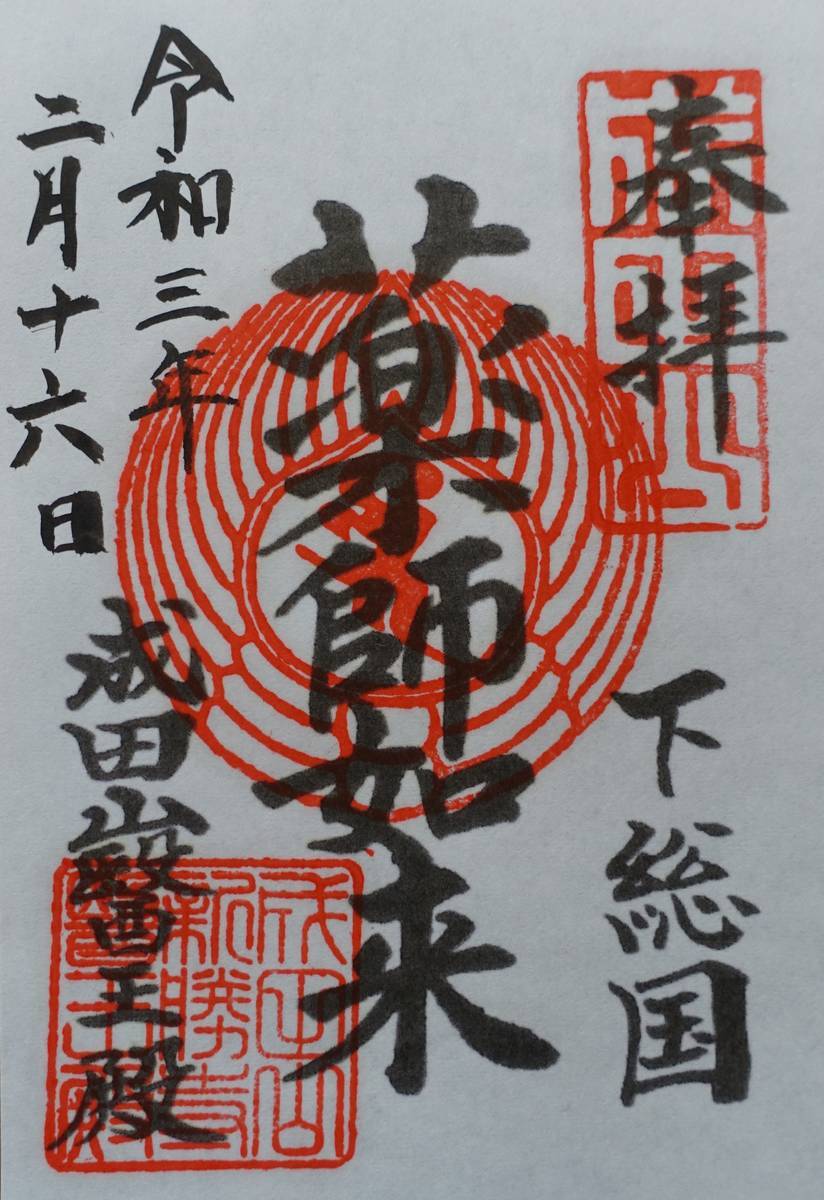 奉拝
下総国
薬師如来
令和三年
二月十六日
成田山醫王殿
成田山
成田山
新勝寺
醫王殿